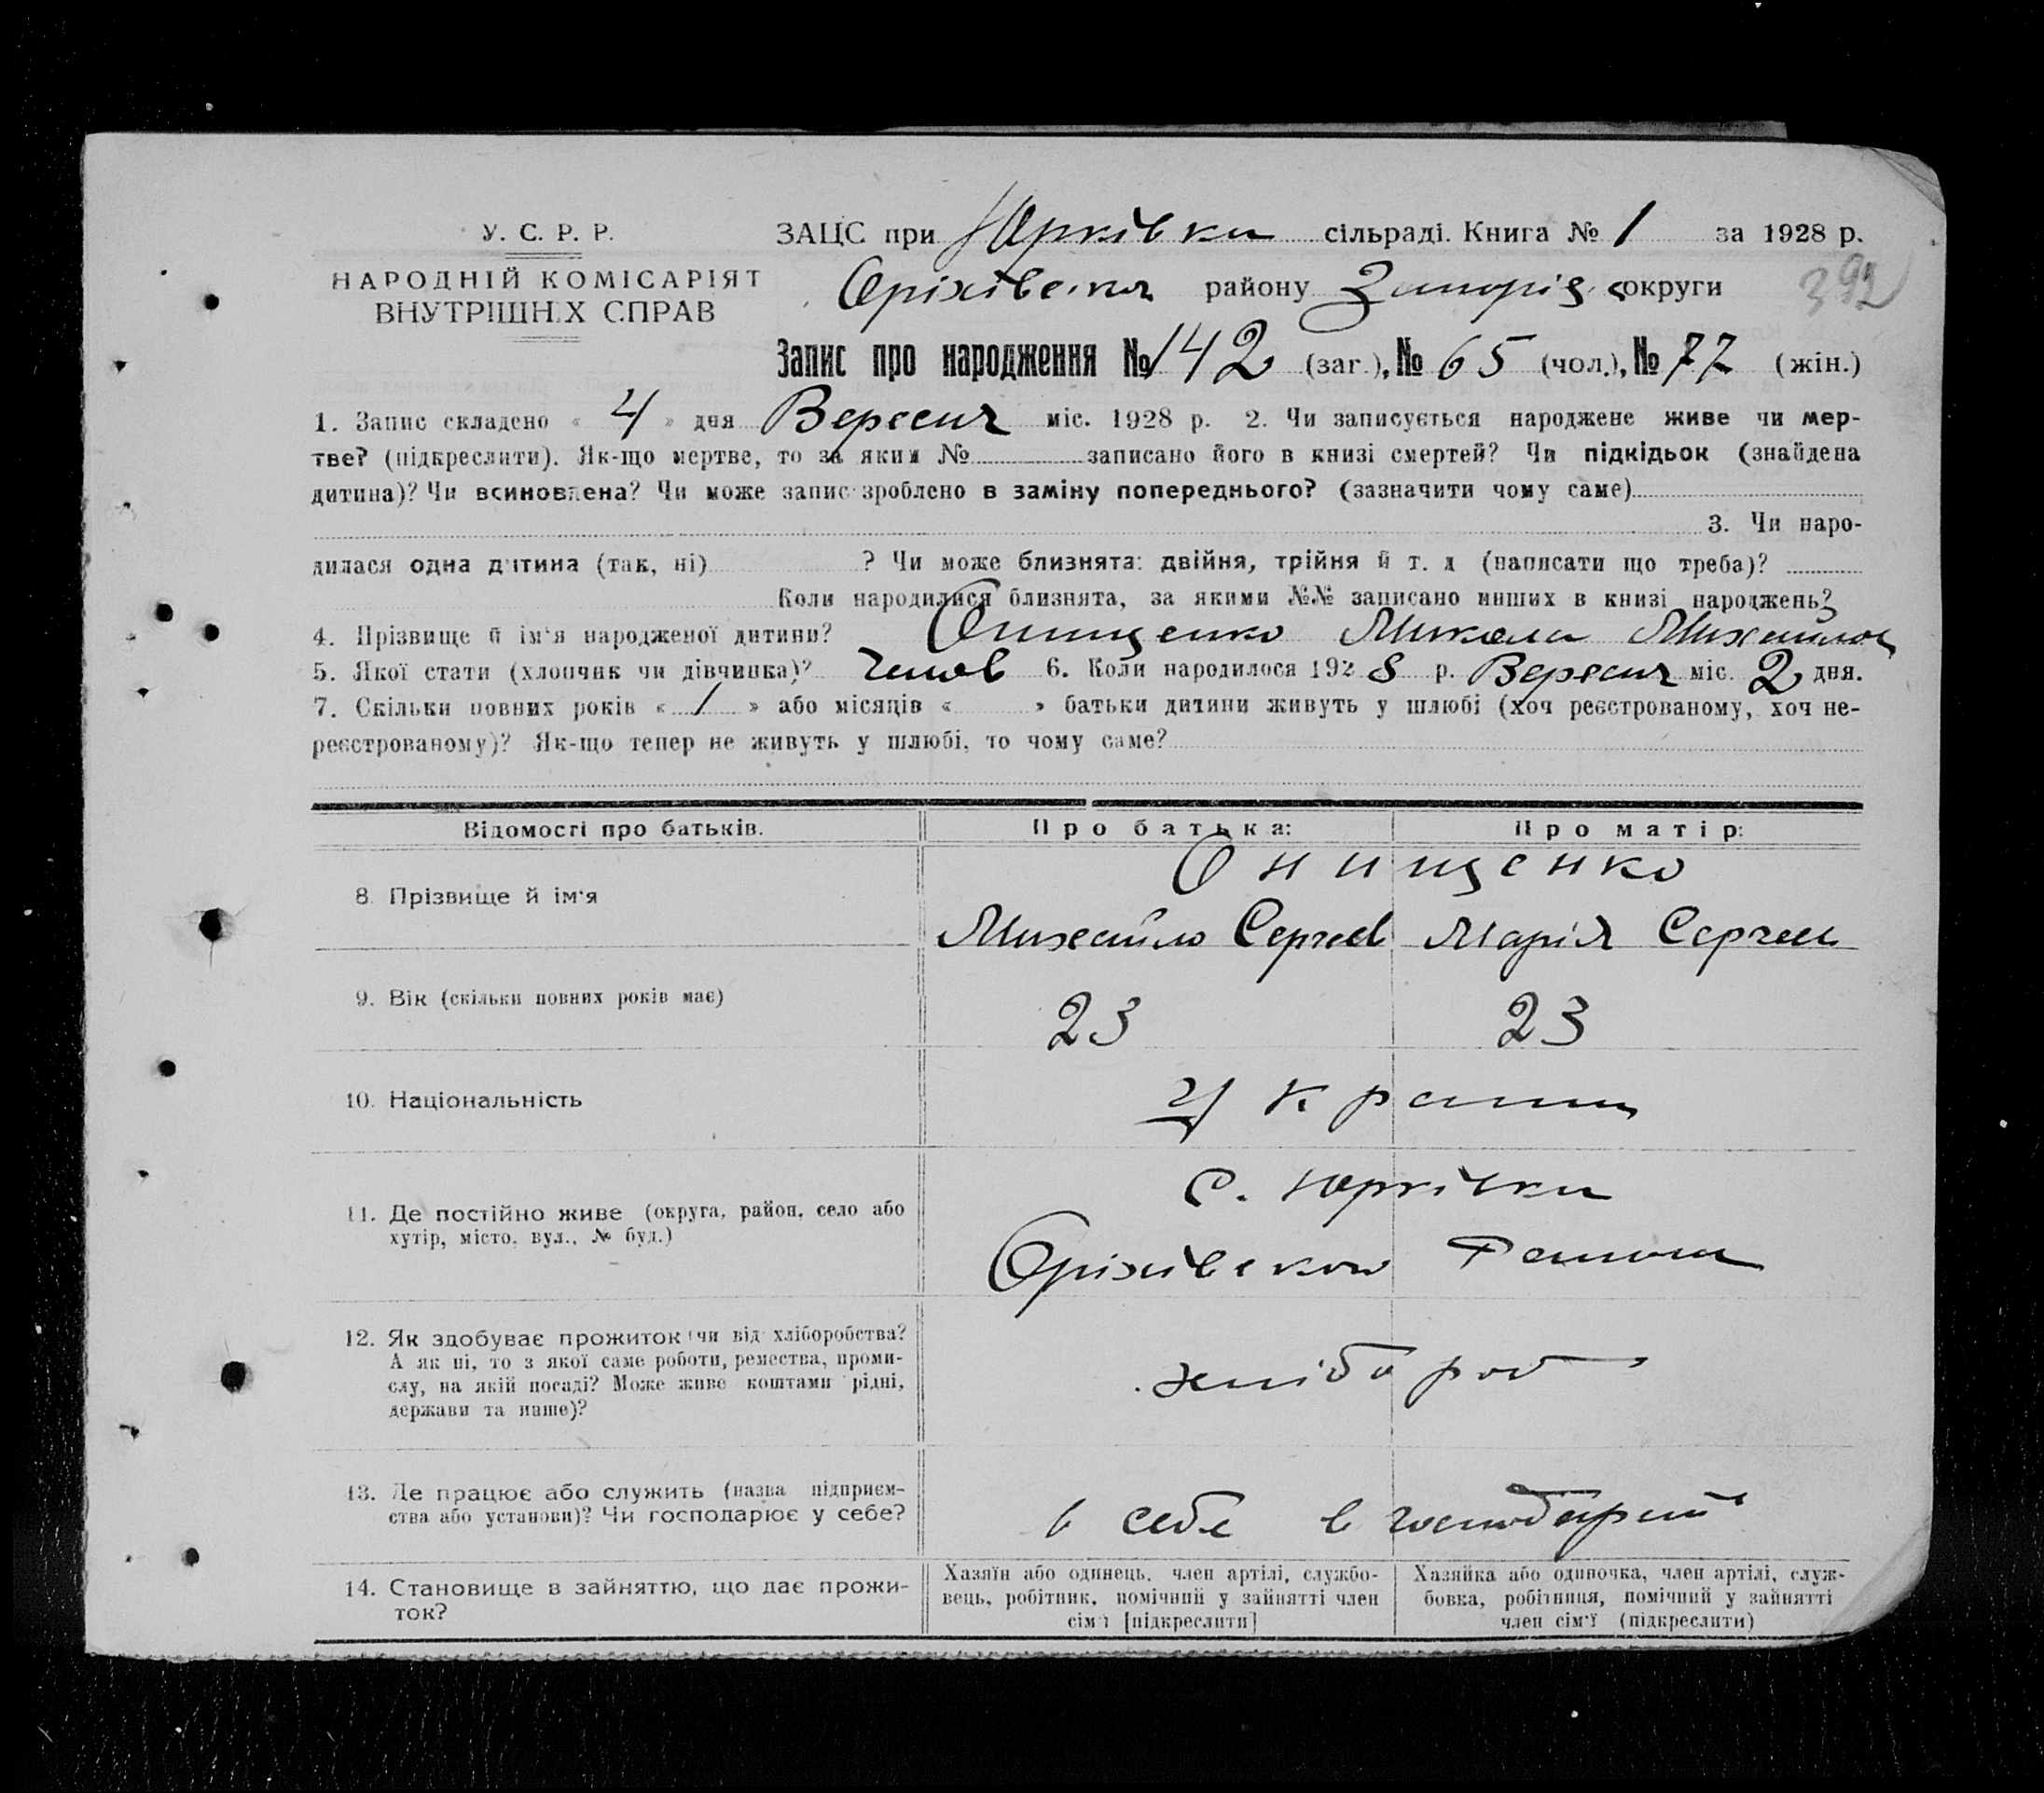 У. С. Р. Р.
НАРОДНІЙ КОМІСАРІЯТ
ВНУТРІШНІХ СПРАВ
ЗАЦС при Юрківка сільраді. Книга № 1 за 1928 р.
Оріхівська району Запоріз. округи 392
Запис про народження № 142 (заг.), № 65 (чол.), № 77 (жін.)
1. Запис складено « 4 » дня Вересня міс. 1928 р. 2. Чи записується народжене живе чи мер-
тве? (підкреслити). Як-що мертве, то за яким № записано його в книзі смертей? Чи підкідьок (знайдена
дитина)? Чи всиновлена? Чи може запис зроблено в заміну попереднього? (зазначити чому саме)
3. Чи наро-
дилася одна дитина (так, ні) ? Чи може близнята: двійня, трійня й т. д (написати що треба)?
Коли народилися близнята, за якими №№ записано инших в книзі народжень?
4. Прізвище й ім'я народженої дитини? Онищенко Микола Михайлов
5. Якої стати (хлопчик чи дівчинка)? Чолов 6. Коли народилося 1928 р. Вересня міс. 2 дня.
7. Скільки повних років « 1 » або місяців « » батьки дитини живуть у шлюбі (хоч реєстрованому, хоч не-
реєстрованому)? Як-що тепер не живуть у шлюбі, то чому саме?
Відомості про батьків. Про батька: Про матір:
8. Прізвище й ім'я Онищенко
Михайло Сергеєв Марія Сергеев
9. Вік (скільки повних років має) 23 23
10. Національність Украин
11. Де постійно живе (округа, район, село або
хутір, місто, вул., № буд.)
с. Юрківка
Оріхівского Района
12. Як здобуває прожиток чи від хліборобства?
А як ні, то з якої саме роботи, ремества, проми-
слу, на якій посаді? Може живе коштами рідні,
держави та инше)?
хлібороб
13. Де працює або служить (назва підприєм-
ства або установи)? Чи господарює у себе?
в себе в господарстві
14. Становище в зайняттю, що дає прожи-
ток?
Хазяїн або одинець, член артілі, службо-
вець, робітник, помічний у зайнятті член
сім'ї [підкреслити]
Хазяйка або одиночка, член артілі, служ-
бовка, робітниця, помічний у зайнятті
член сім'ї (підкреслити)